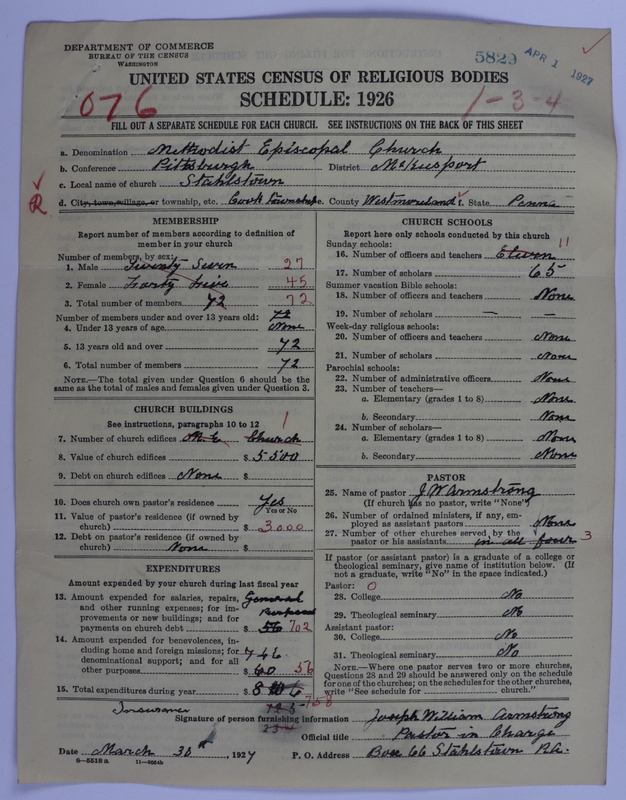 DEPARTMENT OF COMMERCE
BUREAU OF THE CENSUS
WASHINGTON
5829 APR 1 1927
UNITED STATES CENSUS OF RELIGIOUS BODIES
SCHEDULE: 1926
076
1-3-4
FILL OUT A SEPARATE SCHEDULE FOR EACH CHURCH. SEE INSTRUCTIONS ON THE BACK OF THIS SHEET
a. Denomination Methodist Episcopal Church
b. Conference Pittsburgh District McKeesport
c. Local name of church Stahlstown
R
d. City, town, village, or township, etc. Cook Township. County Westmoreland. State Penna
MEMBERSHIP
Report number of members according to definition of
member in your church
Number of members, by sex:
1. Male Twenty Seven 27
2. Female Forty Five 45
3. Total number of members 72 72
Number of members under and over 13 years old: 72
4. Under 13 years of age None
5. 13 years old and over 72
6. Total number of members 72
NOTE.—The total given under Question 6 should be
same as the total of males and females given under Question 3.
CHURCH BUILDINGS
See instructions, paragraphs 10 to 12
7. Number of church edifices M.E. Church 1
8. Value of church edifices $ 5500
9. Debt on church edifices None $
10. Does church own pastor's residence Yes
Yes or No
11. Value of pastor's residence (if owned by
church) $ 3000
12. Debt on pastor's residence (if owned by
church) None $
EXPENDITURES
Amount expended by your church during last fiscal year
13. Amount expended for salaries, repairs, General
and other running expenses; for im-
provements or new buildings; and for
payments on church debt $ 56 702
14. Amount expended for benevolences, in-
cluding home and foreign missions; for 746
denominational support; and for all
other purposes $ 60 56
15. Total expenditures during year $ 758
Insurance
CHURCH SCHOOLS
Report here only schools conducted by this church
Sunday schools:
16. Number of officers and teachers Eleven 11
17. Number of scholars 65
Summer vacation Bible schools:
18. Number of officers and teachers None
19. Number of scholars — —
Week-day religious schools:
20. Number of officers and teachers None
21. Number of scholars None
Parochial schools:
22. Number of administrative officers None
23. Number of teachers—
a. Elementary (grades 1 to 8) None
b. Secondary None
24. Number of scholars—
a. Elementary (grades 1 to 8) None
b. Secondary None
PASTOR
25. Name of pastor J W Armstrong
(If church has no pastor, write "None")
26. Number of ordained ministers, if any, em-
ployed as assistant pastors None
27. Number of other churches served by the
pastor or his assistants in all four 3
If pastor (or assistant pastor) is a graduate of a college or
theological seminary, give name of institution below. (If
not a graduate, write "No" in the space indicated.)
Pastor: 0
28. College No
29. Theological seminary No
Assistant pastor:
30. College No
31. Theological seminary No
NOTE.—Where one pastor serves two or more churches,
Questions 28 and 29 should be answered only on the schedule
for one of the churches; on the schedules for the other churches,
write "See schedule for church."
Signature of person furnishing information Joseph William Armstrong
Official title Pastor in Charge
Date March 30th, 1927 P. O. Address Box 66 Stahlstown PA.
8—5518a 11—9664b